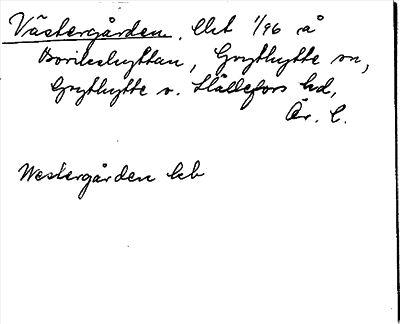 Västergården, Ext 1/96 å
Borileshyttan, Grythytte sn,
Grythytte o. Hällefors hd,
Ör. l.
Westergården kb